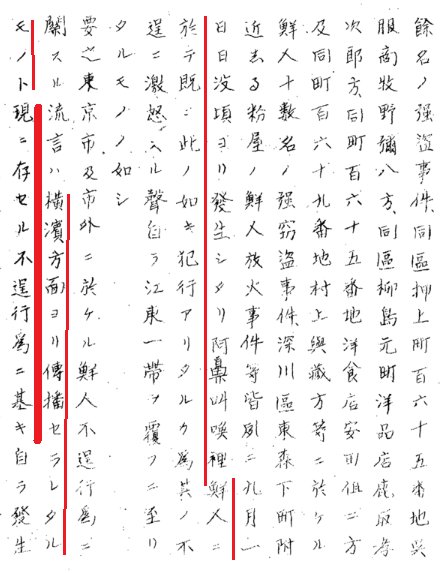 餘名ノ強盗事件、同區押上町百六十五番地呉
服商牧野彌八方、同區柳島元町洋品店鹿取孝
次郎方、同町百六十五番地洋食店安田但二方
及同町百六十九番地村上與藏方等ニ於ケル
鮮人十數名ノ強窃盗事件、深川區東森下町附
近ある粉屋ノ鮮人放火事件等皆別ニ九月一
日日没頃ヨリ發生シタリ阿鼻叫喚裡鮮人ニ
於テ既ニ此ノ如キ犯行アリタルカ爲其ノ不
逞ニ激怒スル聲自ラ江東一帶ヲ覆フニ至リ
タルモノノ如シ
要之東京市及市外ニ於ケル鮮人不逞行爲ニ
關スル流言ハ横濱方面ヨリ傳播セラレタル
モノト現ニ存セル不逞行爲ニ基キ自ラ發生